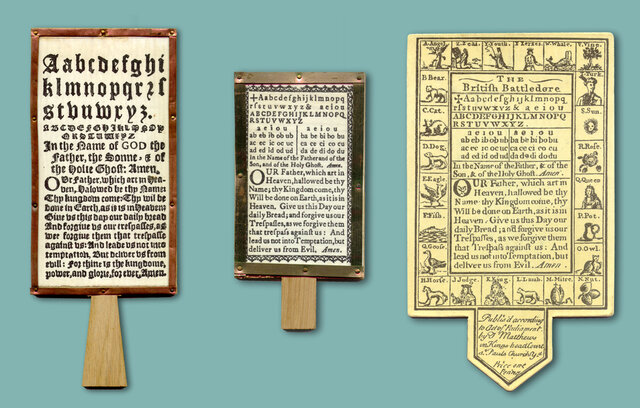 Aabcdefghi
klmnopqrſ
stuvwxyz.
In the Name of GOD the
Father, the Sonne, & of
the Holie Ghoſt: Amen.
OUr Father, which art in Hea-
ven, Halowed be thy Name:
Thy kingdom come: Thy wil be
done in Earth, as it is in Heaven
Giue vs this day our daily bread
And forgiue us our treſpaſſes, as
we forgiue them that treſpaſſe
againſt vs: And leade vs not into
temptation. But deliver vs from
evill: For thine is the kingdome,
power, and glorie, for ever, Amen.
+Aabcdefghijklmnopq
rſstuvwxyz& a e i o u
ABCDEFGHIJKLMNOPQ
RSTUVWXYZ
a e i o u
a e i o u
ab eb ib ob ub
ba be bi bo bu
ac ec ic oc uc
ca ce ci co cu
ad ed id od ud
da de di do du
In the Name of the Father and of the
Son, and of the Holy Ghoſt. Amen.
OUR Father, which art in
Heaven, hallowed be thy
Name; thy Kingdom come, thy
Will be done on Earth, as it is in
Heaven. Give us this Day our
daily Bread; and forgive us our
Treſpaſſes, as we forgive them
that treſpaſs againſt us: And
lead us not into Temptation, but
deliver us from Evil. Amen.
A. Angel.
Y. Youth.
X. Xerxes.
W. Whale.
V. Vine.
B. Bear.
T. Turk.
C. Cat.
S. Sun.
D. Dog.
R. Roſe.
E. Eagle.
Q. Queen
F. Fiſh.
P. Pot.
G. Gooſe.
O. Owl.
H. Horſe.
J. Judge.
K. King.
L. Lamb.
M. Mitre.
N. Nut.
THE
Britiſh Battledore
+Aabcdefghijklmnopq
rſstuvwxyz& a e i o u
ABCDEFGHIJKLMNOPQ
RSTUVWXYZ
a e i o u
a e i o u
ab eb ib ob ub
ba be bi bo bu
ac ec ic oc uc
ca ce ci co cu
ad ed id od ud
da de di do du
In the Name of the Father, & of the
Son, & of the Holy Ghoſt. Amen.
OUR Father, which art in
Heaven, hallowed be thy
Name: thy Kingdom come, thy
Will be done on Earth, as it is in
Heaven. Give us this Day our
daily Bread; and forgive us our
Treſpaſſes, as we forgive them
that Treſpaſs againſt us: And
lead us not into Temptation, but
deliver us from Evil. Amen
Publiſ'd according
to Act of Parliament
by T Matthews
in Kings head Court
St. Pauls Church Yd.
Price one
Penny